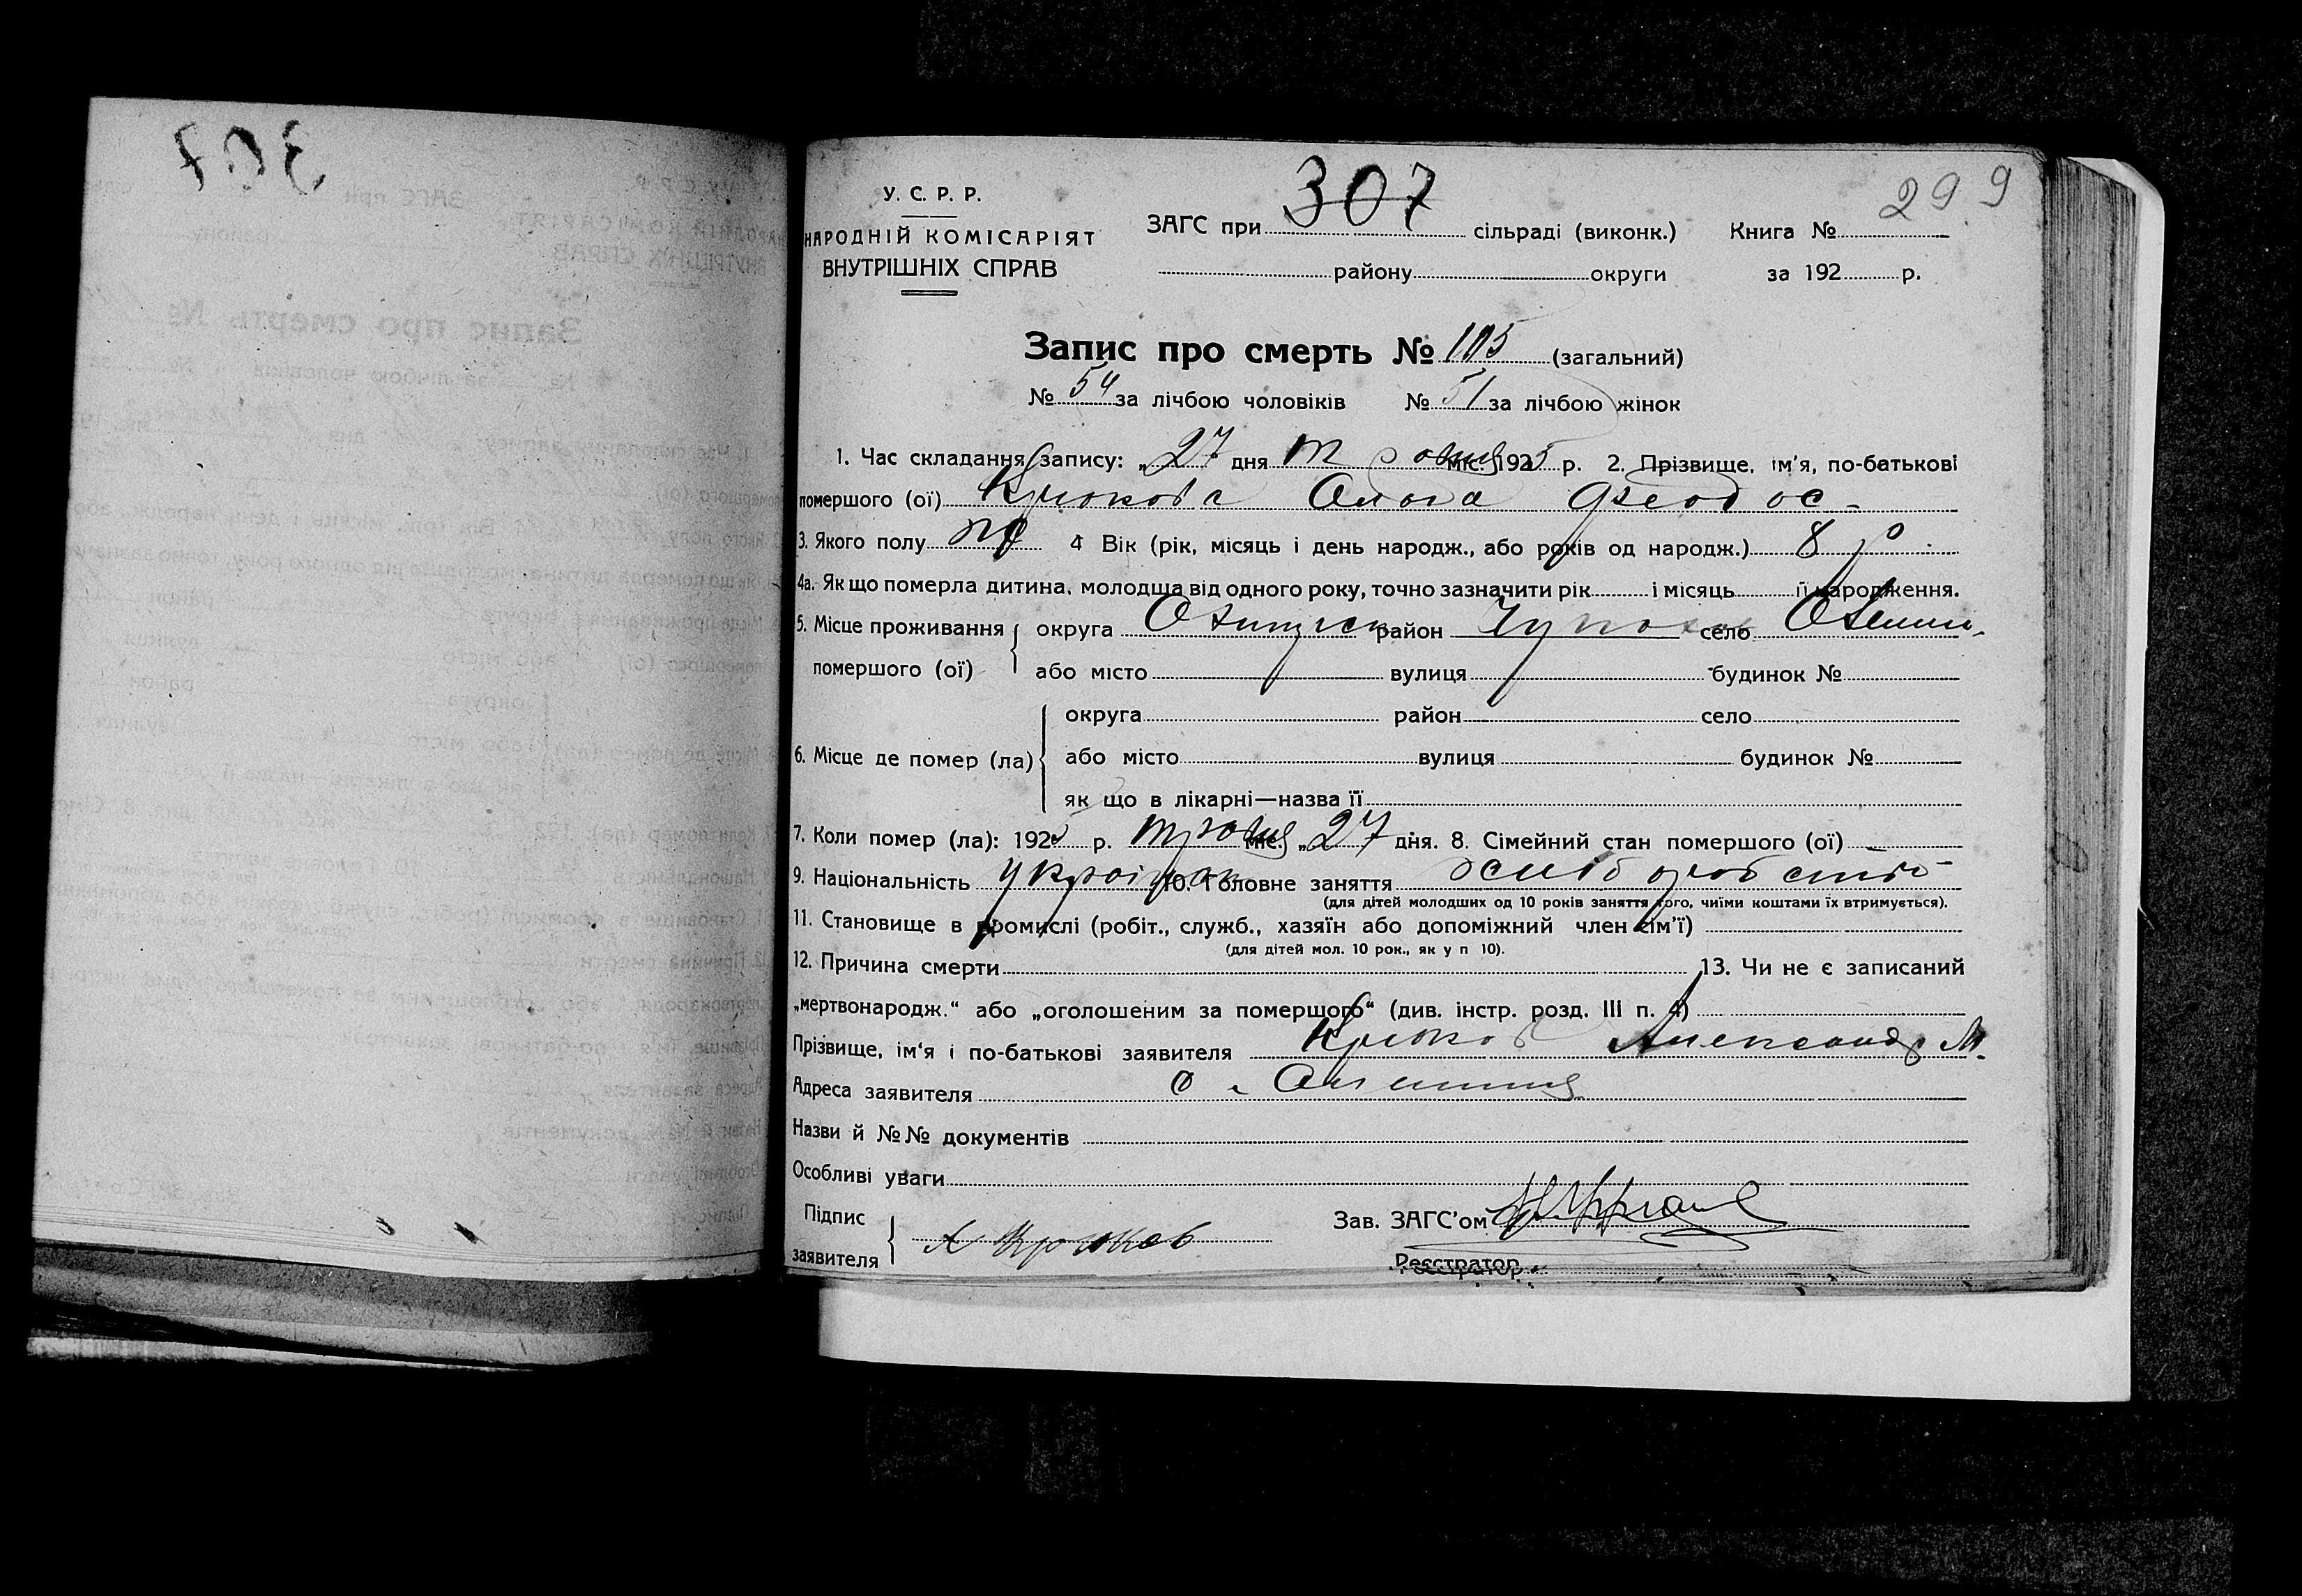 307
299
У. С. Р. Р.
НАРОДНІЙ КОМІСАРІЯТ
ВНУТРІШНІХ СПРАВ
ЗАГС при сільраді (виконк.) Книга №
району округи за 192 р.
Запис про смерть № 105 (загальний)
№ 54 за лічбою чоловіків № 51 за лічбою жінок
1. Час складання запису: „27 дня травня мк. 1925 р. 2. Прізвище, ім'я, по-батькові
помершого (ої) Крюкова Ольга Феодос-
3. Якого полу 4 Вік (рік, місяць і день народж., або років од народж.) 8 р.
4а. Як що померла дитина, молодща від одного року, точно зазначити рік і місяць її народження.
5. Місце проживання округа район село
помершого (ої) або місто вулиця будинок №
округа район село
6. Місце де помер (ла) або місто вулиця будинок №
як що в лікарні—назва її
7. Коли помер (ла): 1925 р. травня міс. „27 дня. 8. Сімейний стан помершого (ої) —
9. Національність україн 10. Головне заняття
(для дітей молодших од 10 років заняття того, чиїми коштами їх втримується).
11. Становище в промислі (робіт., служб., хазяїн або допоміжний член сім'ї)
(для дітей мол. 10 рок., як у п 10).
12. Причина смерти 13. Чи не є записаний
„мертвонародж.“ або „оголошеним за помершого“ (див. інстр. розд. III п. 4)
Прізвище, ім'я і по-батькові заявителя Крюков Александр М.
Адреса заявителя
Назви й №№ документів
Особливі уваги
Підпис
заявителя А Крюков
Зав. ЗАГС'ом
Реєстратор